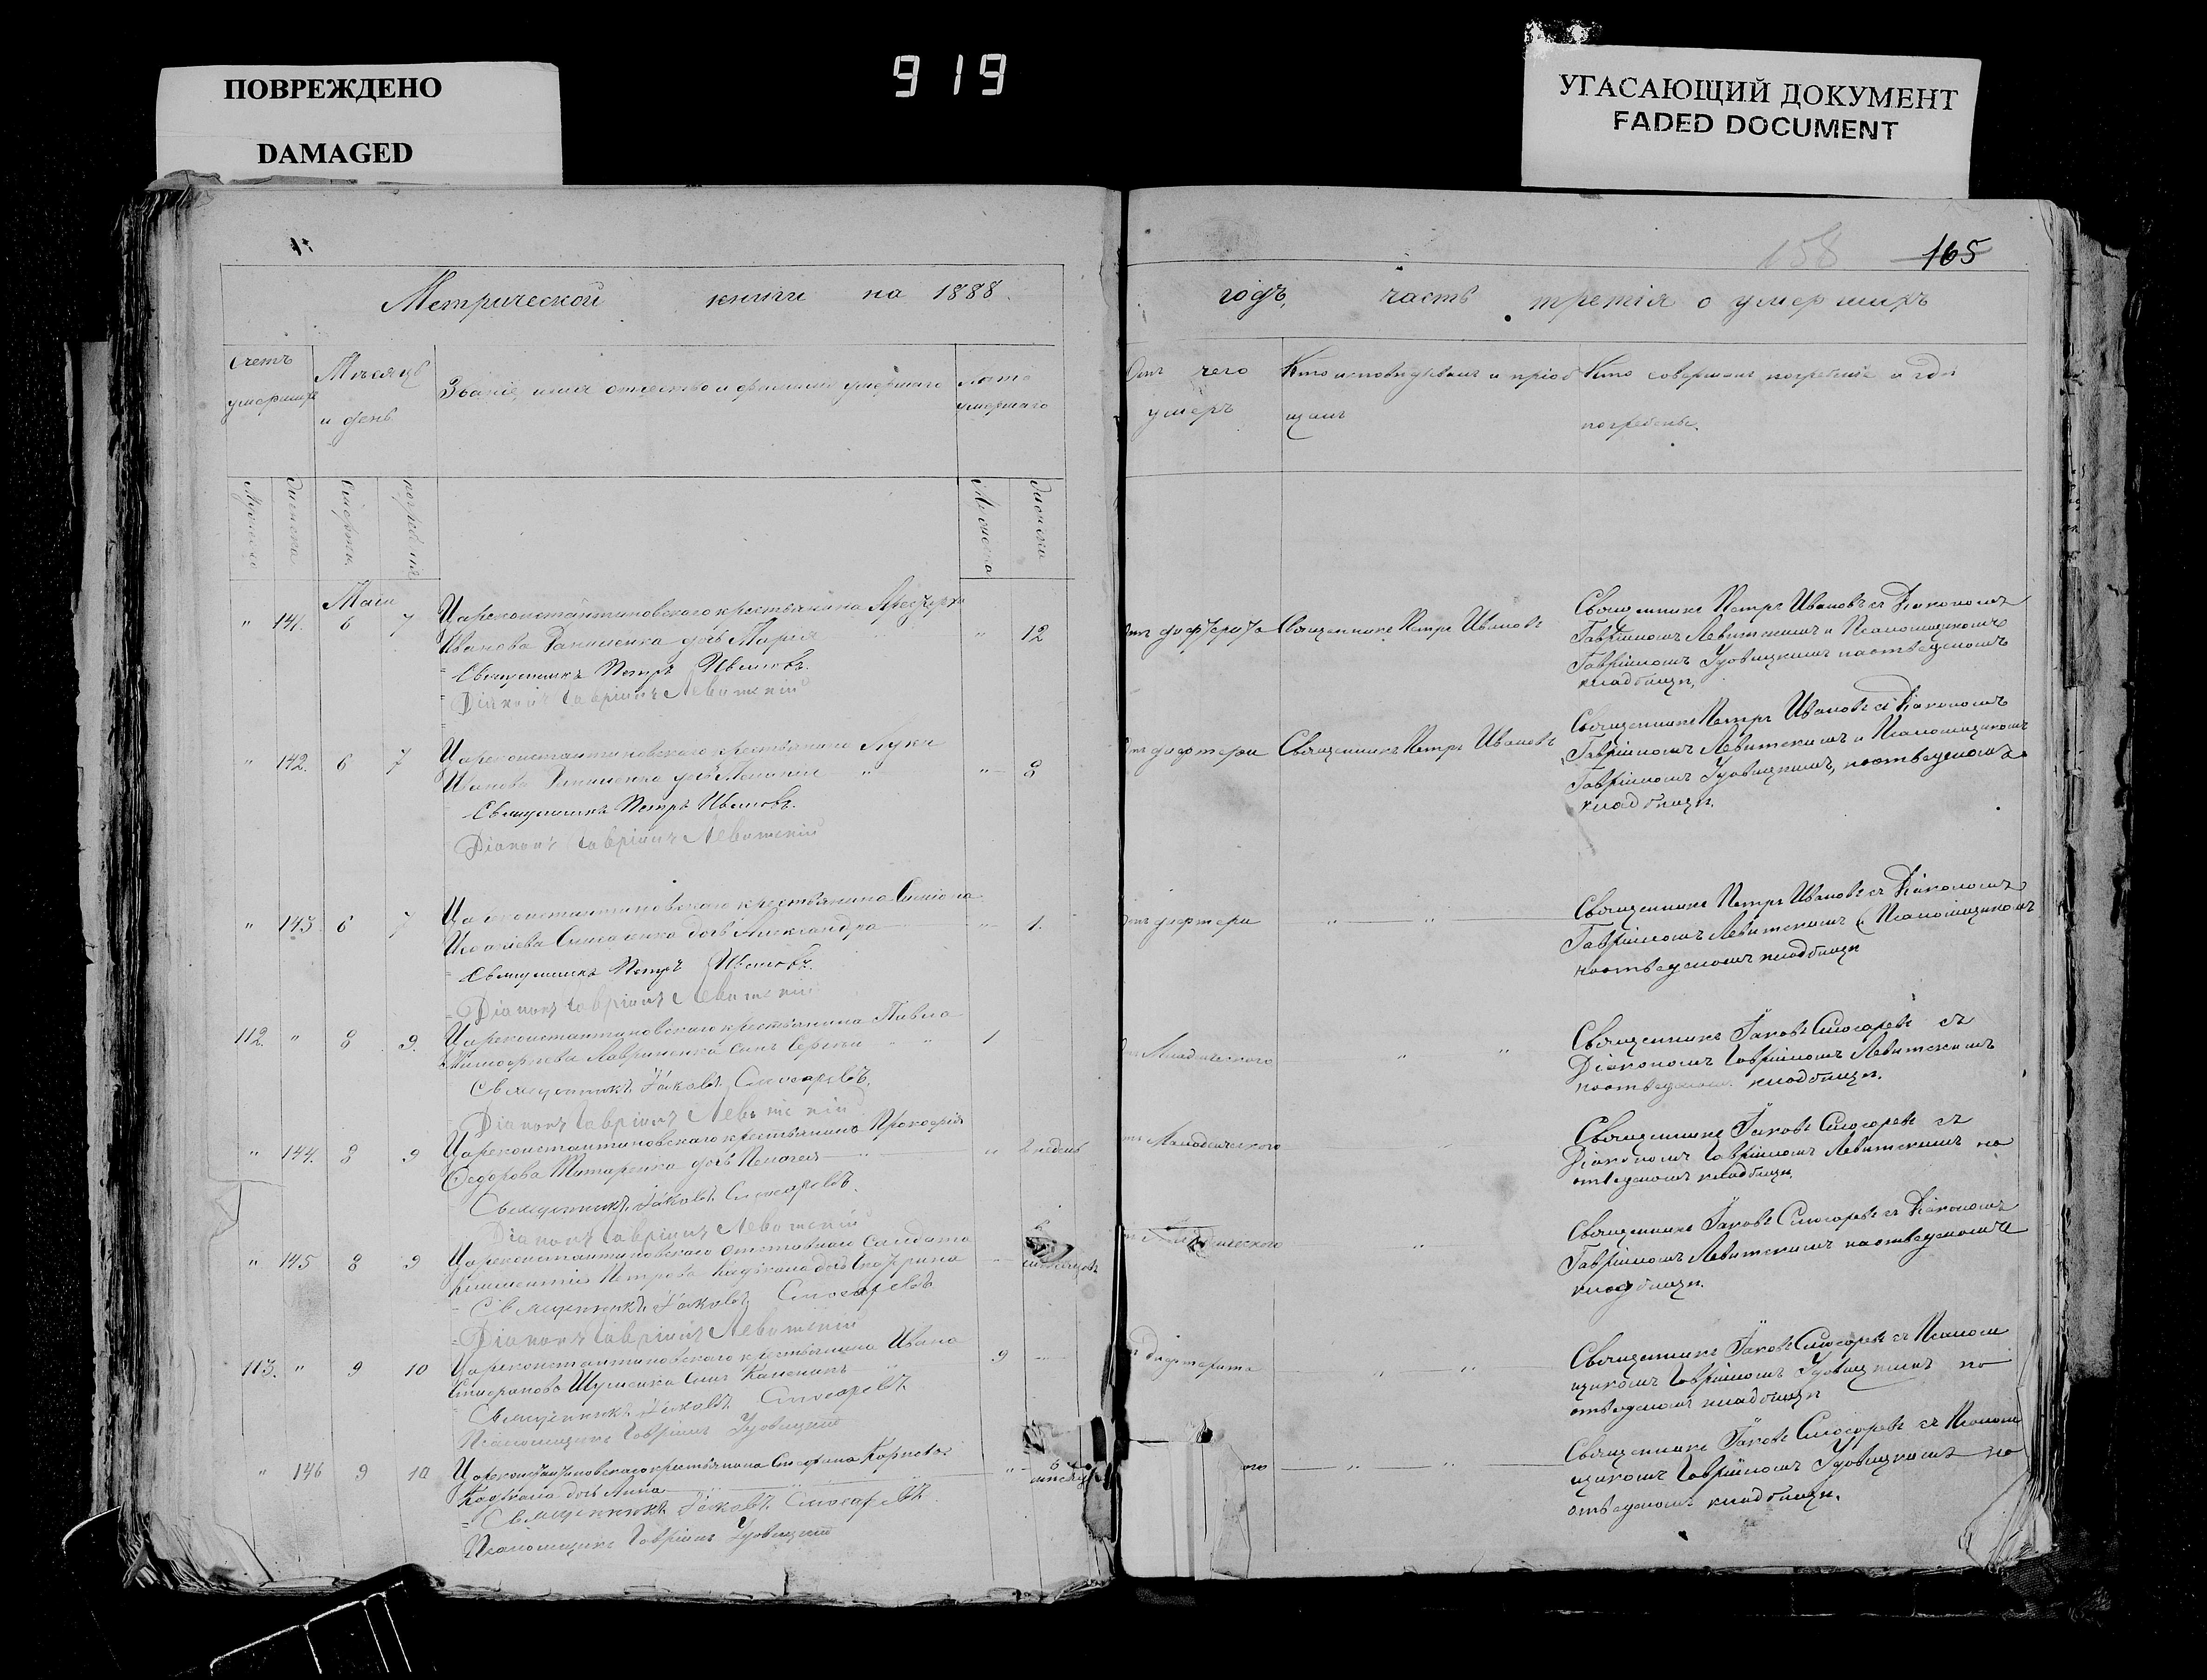 ПОВРЕЖДЕНО
DAMAGED
919
УГАСАЮЩИЙ ДОКУМЕНТ
FADED DOCUMENT
158 165
Метрической книги на 1888
годъ, часть третія о умершихъ
Счетъ
умершихъ
Мѣсяцъ
и день
Званіе, имя отчество и фамилія умершаго
лѣта
умершаго
Отъ чего
умеръ
Кто исповѣдывалъ и пріоб
щалъ
Кто совершалъ погребеніе и гдѣ
погребены.
Мужеска
женска
Смерти
погребенія
Мужеска
женска
Мая
" 141. 6 7 Цареконстантиновскаго крестьянина
Иванова дочь Марія " 12
Священникъ Петръ Ивановъ.
Діаконъ Гавріилъ Левитскій
Отъ дифѳерита Священникъ Петръ Ивановъ
Священникъ Петръ Ивановъ съ Діакономъ
Гавріиломъ Левитскимъ и Псаломщикомъ
Гавріиломъ Удовицкимъ на отведеномъ
кладбищи,
" 142. 6 7 Цареконстантиновскаго крестьянина Луки
Иванова дочь " " 8
Священникъ Петръ Ивановъ.
Діаконъ Гавріилъ Левитскій
Отъ дифтери Священникъ Петръ Ивановъ
Священникъ Петръ Ивановъ съ Діакономъ
Гавріиломъ Левитскимъ и Псаломщикомъ
Гавріиломъ Удовицкимъ, на отведеномъ
кладбищи.
" 143 6 7 Цареконстантиновскаго крестьянина Симіона
дочь Александра " 1.
Священникъ Петръ Ивановъ.
Діаконъ Гавріилъ Левитскій
Отъ дифтери " "
Священникъ Петръ Ивановъ съ Діакономъ
Гавріиломъ Левитскимъ Псаломщикомъ
на отведеномъ кладбищи
112. " 8 9. Цареконстантиновскаго крестьянина Павла
Лавриненка сынъ Сергѣй " " 1
Священникъ Іаковъ Слюсаревъ.
Діаконъ Гавріилъ Левитскій
Младенческого " "
Священникъ Іаковъ Слюсаревъ съ
Діакономъ Гавріиломъ Левитскимъ
на отведеномъ кладбищи.
" 144. 8 9 Цареконстантиновскаго крестьянина Прокофія
Федорова Титаренка дочь Пелагея " " 2 недель
Священникъ Іаковъ Слюсаревъ.
Діаконъ Гавріилъ Левитскій
Младенческого
Священникъ Іаковъ Слюсаревъ съ
Діакономъ Гавріиломъ Левитскимъ на
отведеномъ кладбищи.
" 145 8 9 Цареконстантиновскаго отставнаго Солдата
Климентія Петрова дочь Екатерина
Священникъ Іаковъ Слюсаревъ
Діаконъ Гавріилъ Левитскій
Младенческого "
Священникъ Іаковъ Слюсаревъ съ Діакономъ
Гавріиломъ Левитскимъ на отведеномъ
кладбищи.
113. " 9 10 Цареконстантиновскаго крестьянина Ивана
Шульженка сынъ 9
Священникъ Іаковъ Слюсаревъ
Псаломщикъ Гавріилъ Удовицкій
Дифтерита " "
Священникъ Іаковъ Слюсаревъ съ Псалом
щикомъ Гавріиломъ Удовицкимъ на
отведеномъ кладбищи
" 146 9 10 Цареконстантиновскаго крестьянина Стефана
дочь Анна " 6
Священникъ Іаковъ Слюсаревъ
Псаломщикъ Гавріилъ Удовицкій
ого " "
Священникъ Іаковъ Слюсаревъ съ Псалом
щикомъ Гавріиломъ Удовицкимъ на
отведеномъ кладбищи.